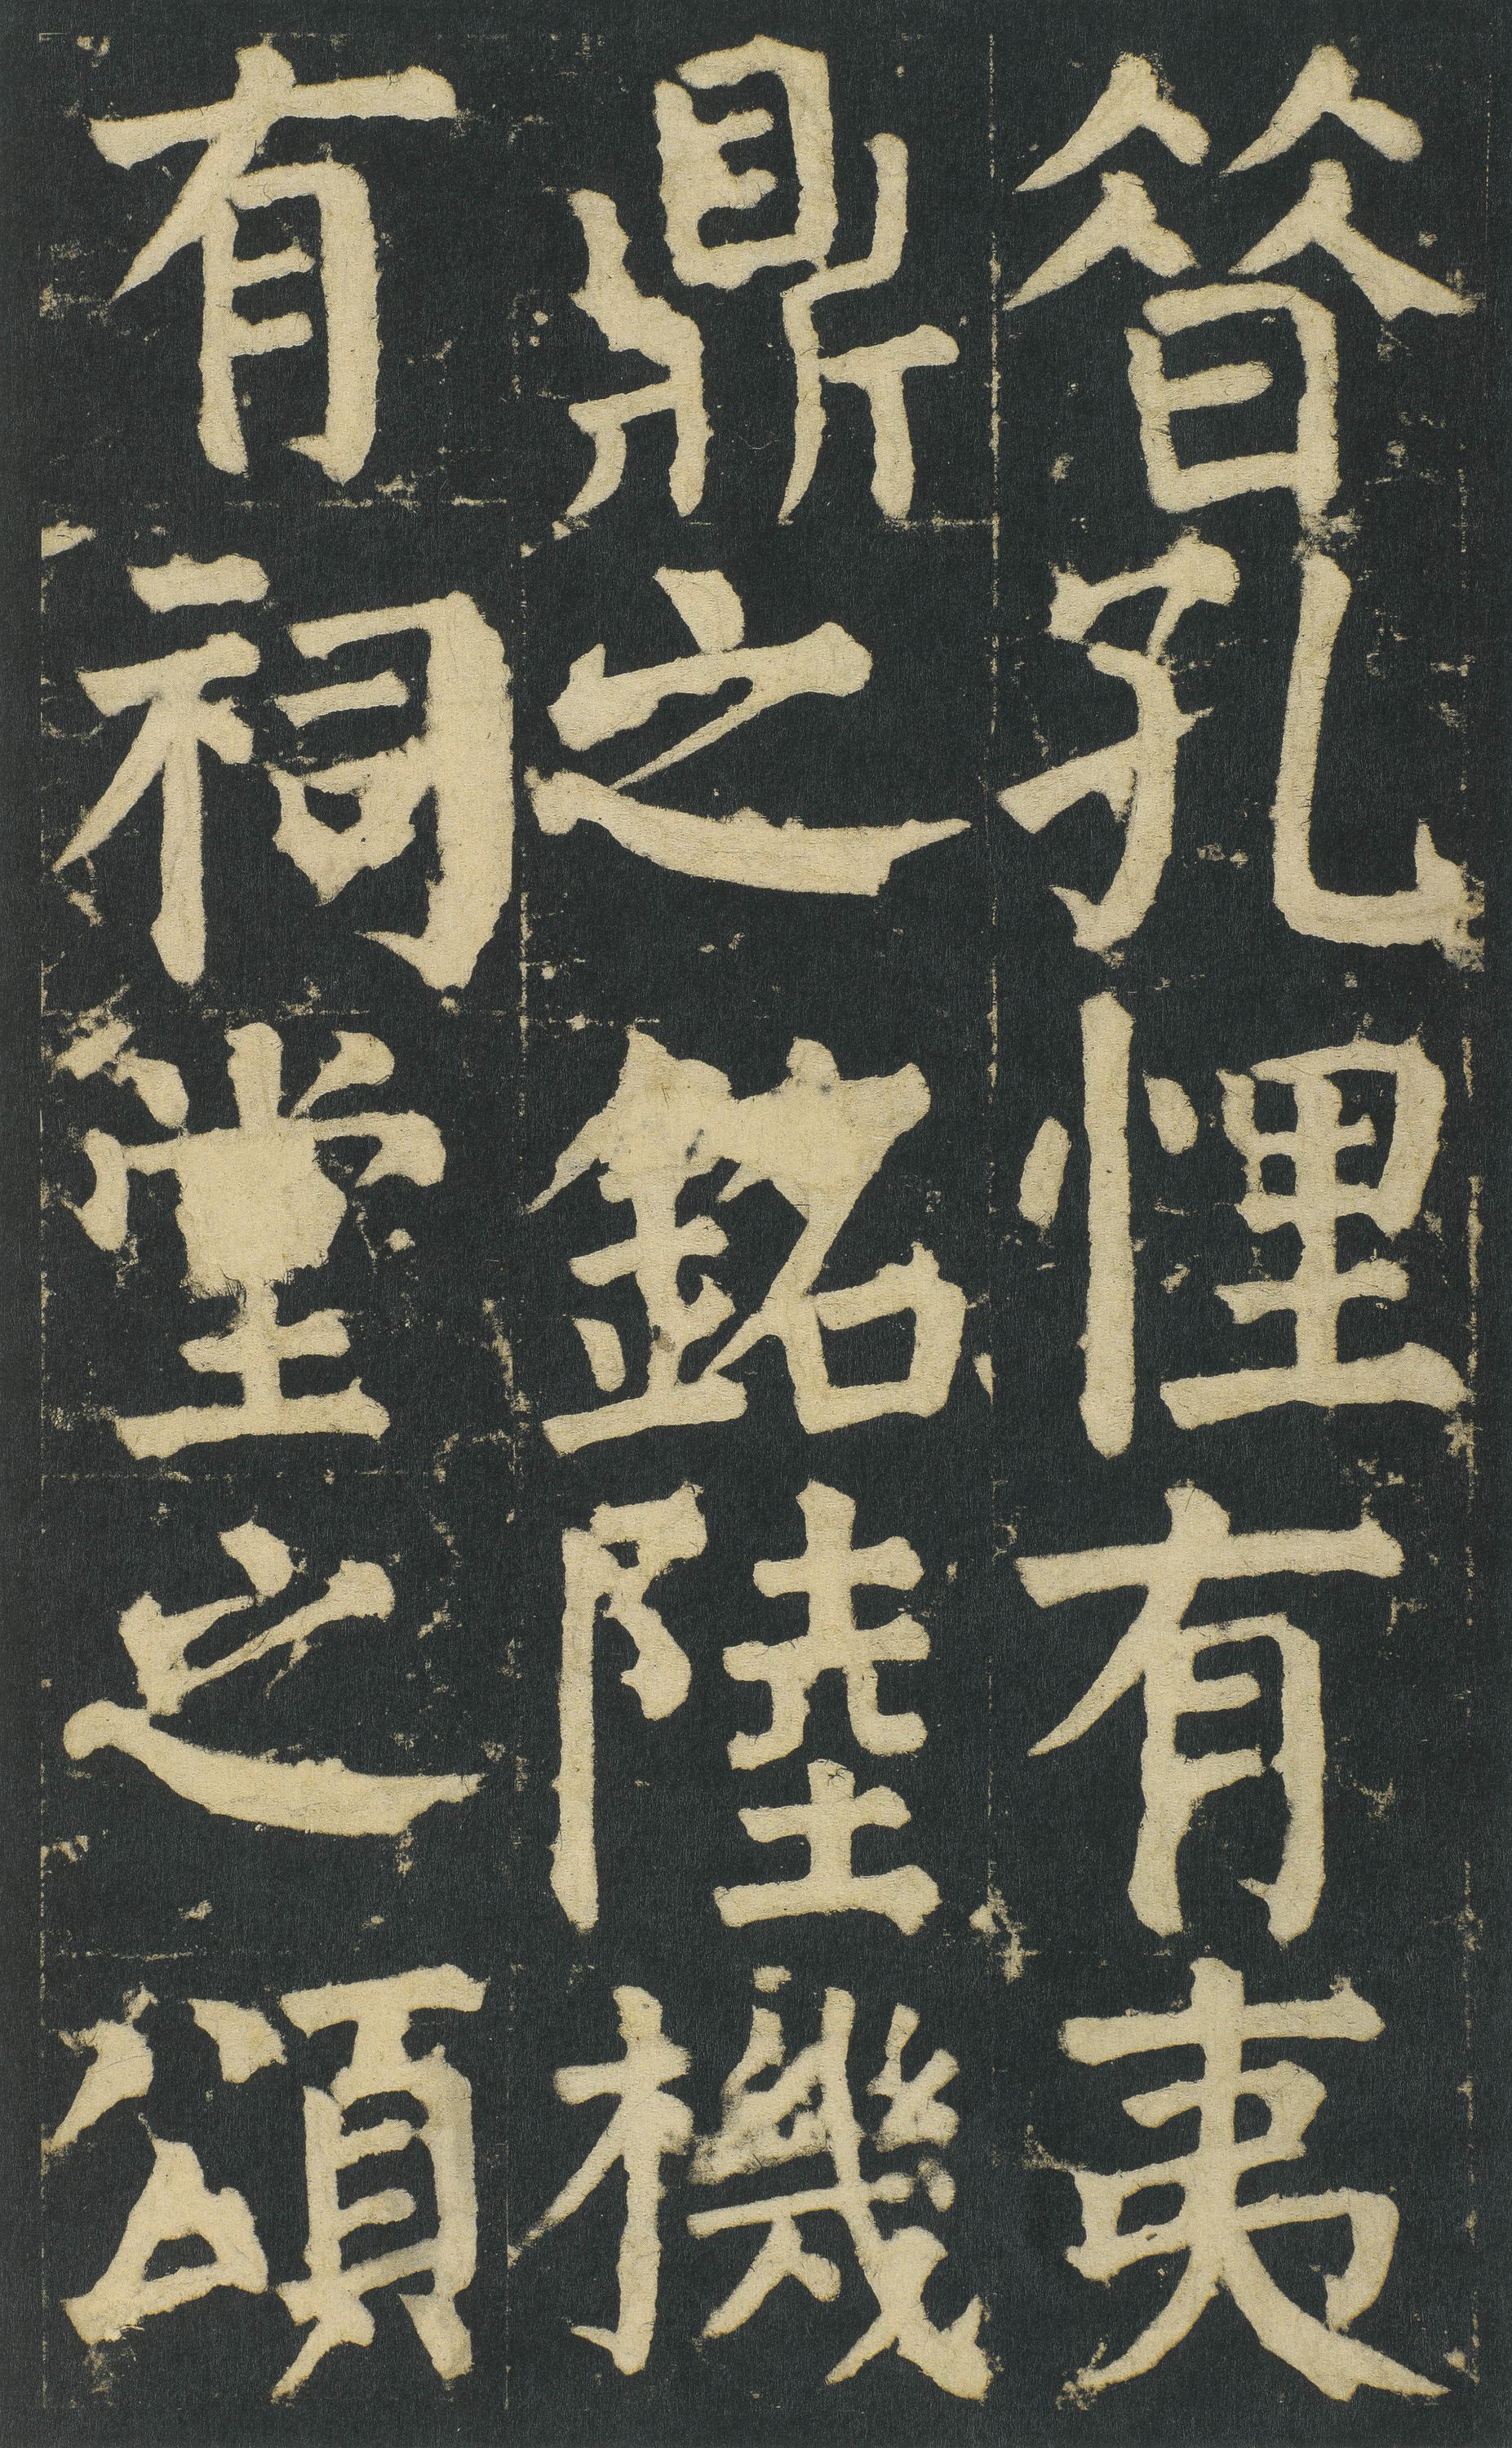 昔孔悝有夷
鼎之銘陸機
有祠堂之頌